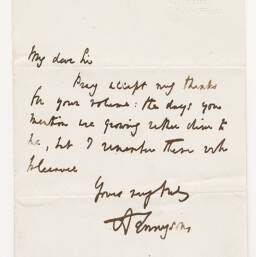 My dear Sir
Pray accept my thanks
for your volume: the days you
mention are growing rather dim to
me, but I remember them with
pleasure
Yours very truly
A Tennyson